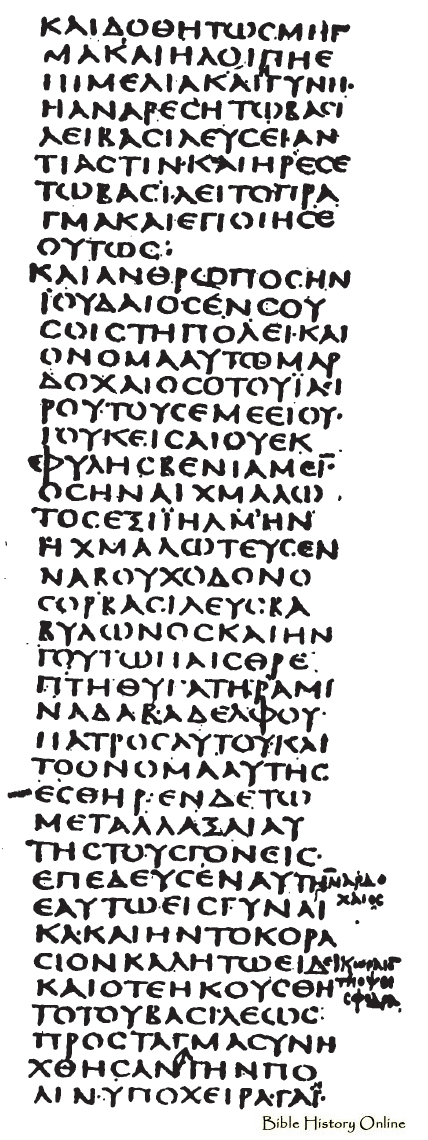 ΚΑΙΔΟΘΗΤΩCΜΗΓ
ΜΑΚΑΙΗΛΟΙΠΗΕ
ΠΙΜΕΛΙΑΚΑΙΓΥΝΗ·
ΗΑΝΑΡΕCΗΤΩΒΑCΙ
ΛΕΙΒΑCΙΛΕΥCΕΙΑΝ
ΤΙΑCΤΙΝ·ΚΑΙΗΡΕCΕ
ΤΩΒΑCΙΛΕΙΤΟΠΡΑ
ΓΜΑΚΑΙΕΠΟΙΗCΕ
ΟΥΤΩC:
ΚΑΙΑΝΘΡΩΠΟCΗΝ
ΙΟΥΔΑΙΟCΕΝCΟΥ
CΟΙCΤΗΠΟΛΕΙ·ΚΑΙ
ΟΝΟΜΑΑΥΤΩΜΑΡ
ΔΟΧΑΙΟCΟΤΟΥΪΑΕΙ
ΡΟΥ·ΤΟΥCΕΜΕΕΙΟΥ·
ΙΟΥΚΕΙCΑΙΟΥΕΚ
ΦΥΛΗCΒΕΝΙΑΜΕΙ̅·
ΟCΗΝΑΙΧΜΑΛΩ
ΤΟCΕΞΙΪΗΛΜ'ΗΝ
ΗΧΜΑΛΩΤΕΥCΕΝ
ΝΑΒΟΥΧΟΔΟΝΟ
CΟΡΒΑCΙΛΕΥC·ΒΑ
ΒΥΛΩΝΟCΚΑΙΗΝ
ΤΟΥΤΩΠΑΙCΘΡΕ
ΠΤΗΘΥΓΑΤΗΡΑΜΙ
ΝΑΔΑΒΑΔΕΛΦΟΥ·
ΠΑΤΡΟCΑΥΤΟΥΚΑΙ
ΤΟΟΝΟΜΑΑΥΤΗC
ΕCΘΗΡ·ΕΝΔΕΤΩ
ΜΕΤΑΛΛΑΞΑΙΑΥ
ΤΗCΤΟΥCΓΟΝΕΙC·
ΕΠΕΔΕΥCΕΝΑΥΤΗ ΜΑΡΔΟ
ΧΑΙΟC
ΕΑΥΤΩΕΙCΓΥΝΑΙ
ΚΑ·ΚΑΙΗΝΤΟΚΟΡΑ
CΙΟΝΚΑΛΗΤΩΕΙΔΕΙ
ΚΑΙΟΤΕΗΚΟΥCΘΗ
CΦΟΔΡΑ
ΤΟΤΟΥΒΑCΙΛΕΩC:
ΠΡΟCΤΑΓΜΑCΥΝΗ
ΧΘΗCΑΝΤΗΝΠΟ
ΛΙΝ·ΥΠΟΧΕΙΡΑ·ΓΑΪ·
Bible History Online